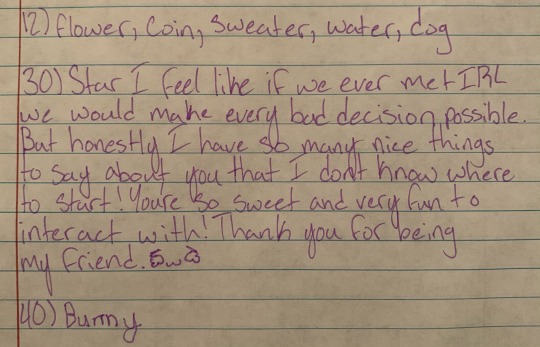 12) flower, Coin, sweater, water, dog
30) Star I feel like if we ever met IRL
we would make every bad decision possible.
But honestly I have so many nice things
to say about you that I don't know where
to start! Youre so sweet and very fun to
interact with! Thank you for being
my friend.
40) Bunny